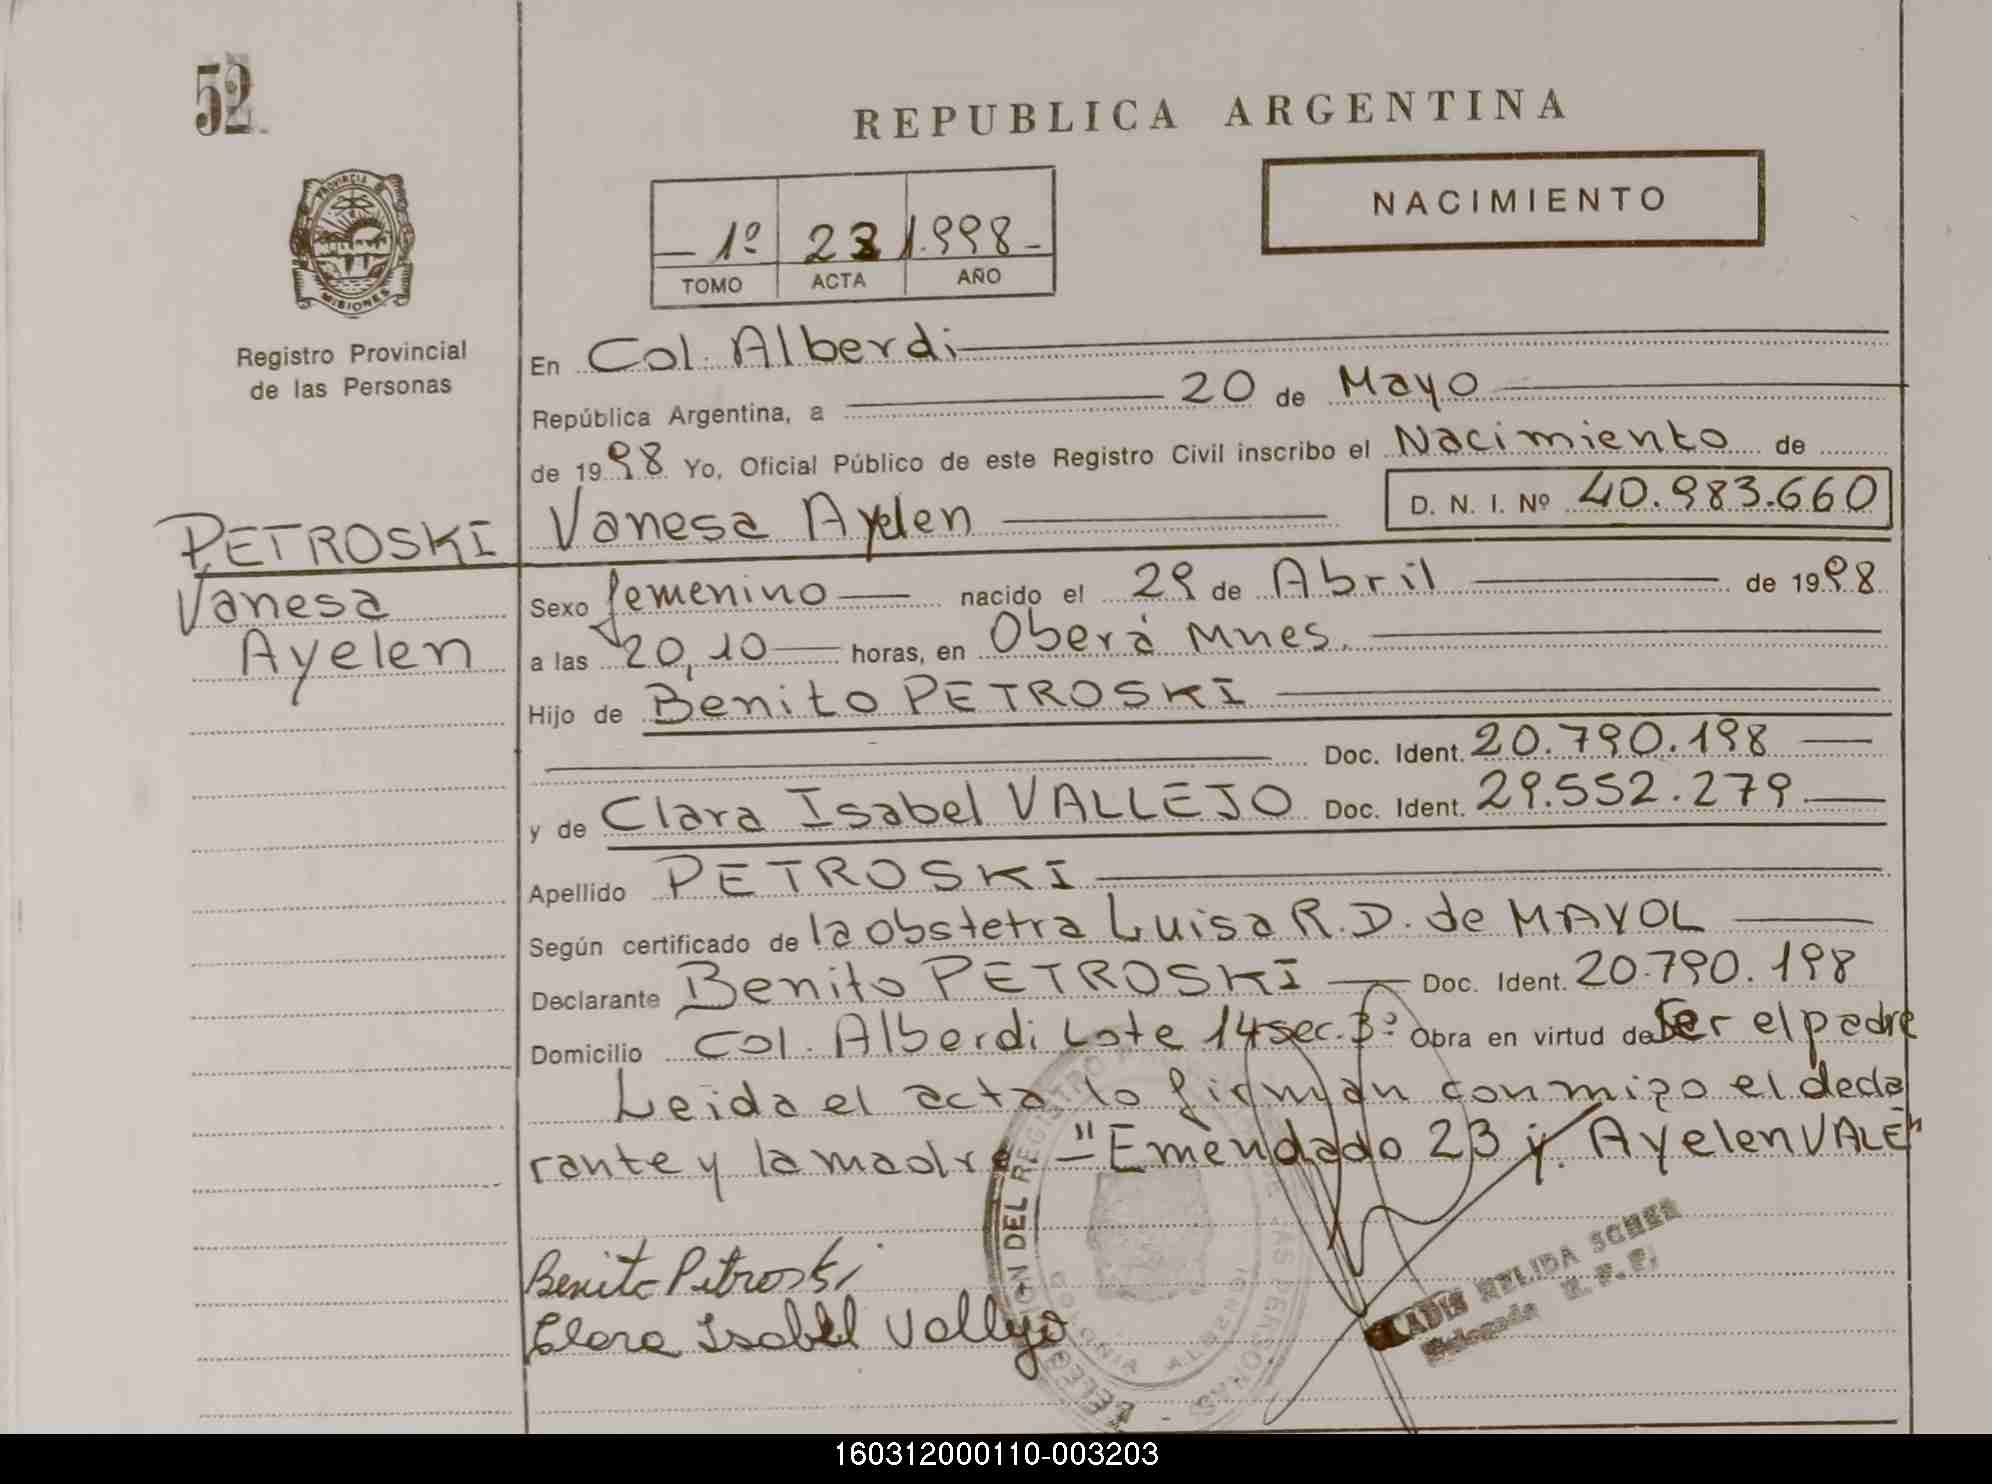 52
REPUBLICA ARGENTINA
PROVINCIA
MISIONES
Registro Provincial
de las Personas
- 1º 23 1.998 -
TOMO ACTA AÑO
NACIMIENTO
En Col. Alberdi
República Argentina, a 20 de Mayo
de 1998 Yo, Oficial Público de este Registro Civil inscribo el Nacimiento de
D. N. I. Nº 40.983.660
PETROSKI Vanesa Ayelen
Vanesa
Ayelen
Sexo femenino nacido el 29 de Abril de 1998
a las 20,10 horas, en Oberá Mnes.
Hijo de Benito PETROSKI
Doc. Ident. 20.790.198
y de Clara Isabel VALLEJO Doc. Ident. 29.552.279
Apellido PETROSKI
Según certificado de la obstetra Luisa R. D. de MAYOL
Declarante Benito PETROSKI Doc. Ident. 20.790.198
Domicilio Col. Alberdi Lote 14 sec. 3º Obra en virtud de Ser el padre
Leida el acta lo firman conmigo el decla
rante y la madre. - "Emendado 23 y. Ayelen VALE"
Benito Petroski
Clara Isabel Vallejo
DEL REGISTRO
LAS PERSONAS
COLONIA ALBERDI
NELIDA SCHER
Delegada
160312000110-003203